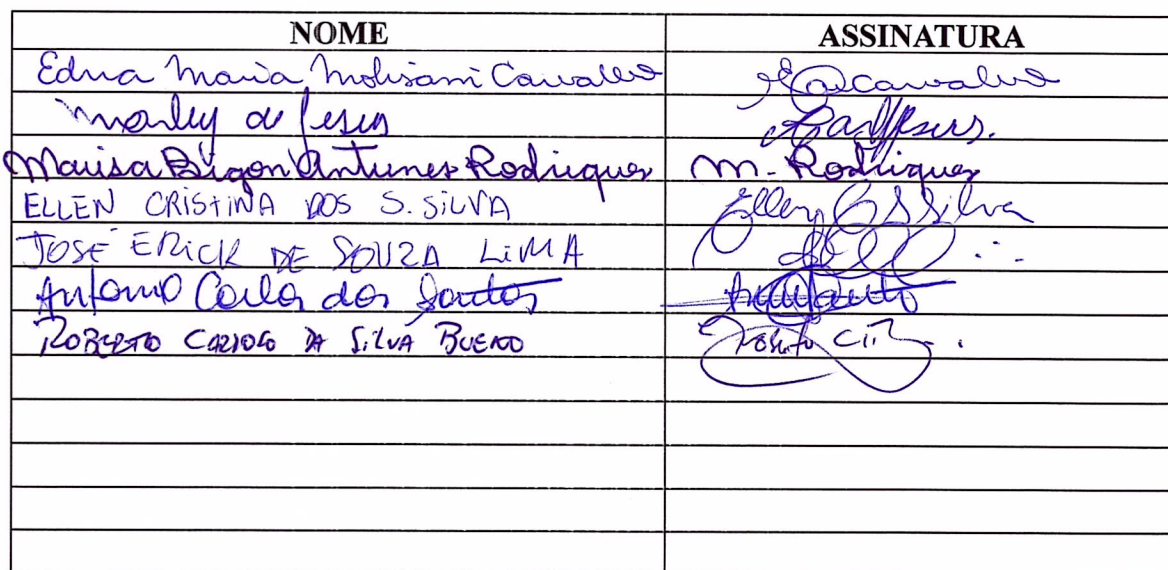 NOME ASSINATURA
Edna Maria Molisani Carvalho
Marley de Jesus
Marisa Bigon Antunes Rodrigues M. Rodrigues
ELLEN CRISTINA DOS S. SILVA Ellen C S Silva
JOSÉ ERICK DE SOUZA LIMA
Antonio Carlos dos Santos
ROBERTO CARIOCO DA SILVA BUENO